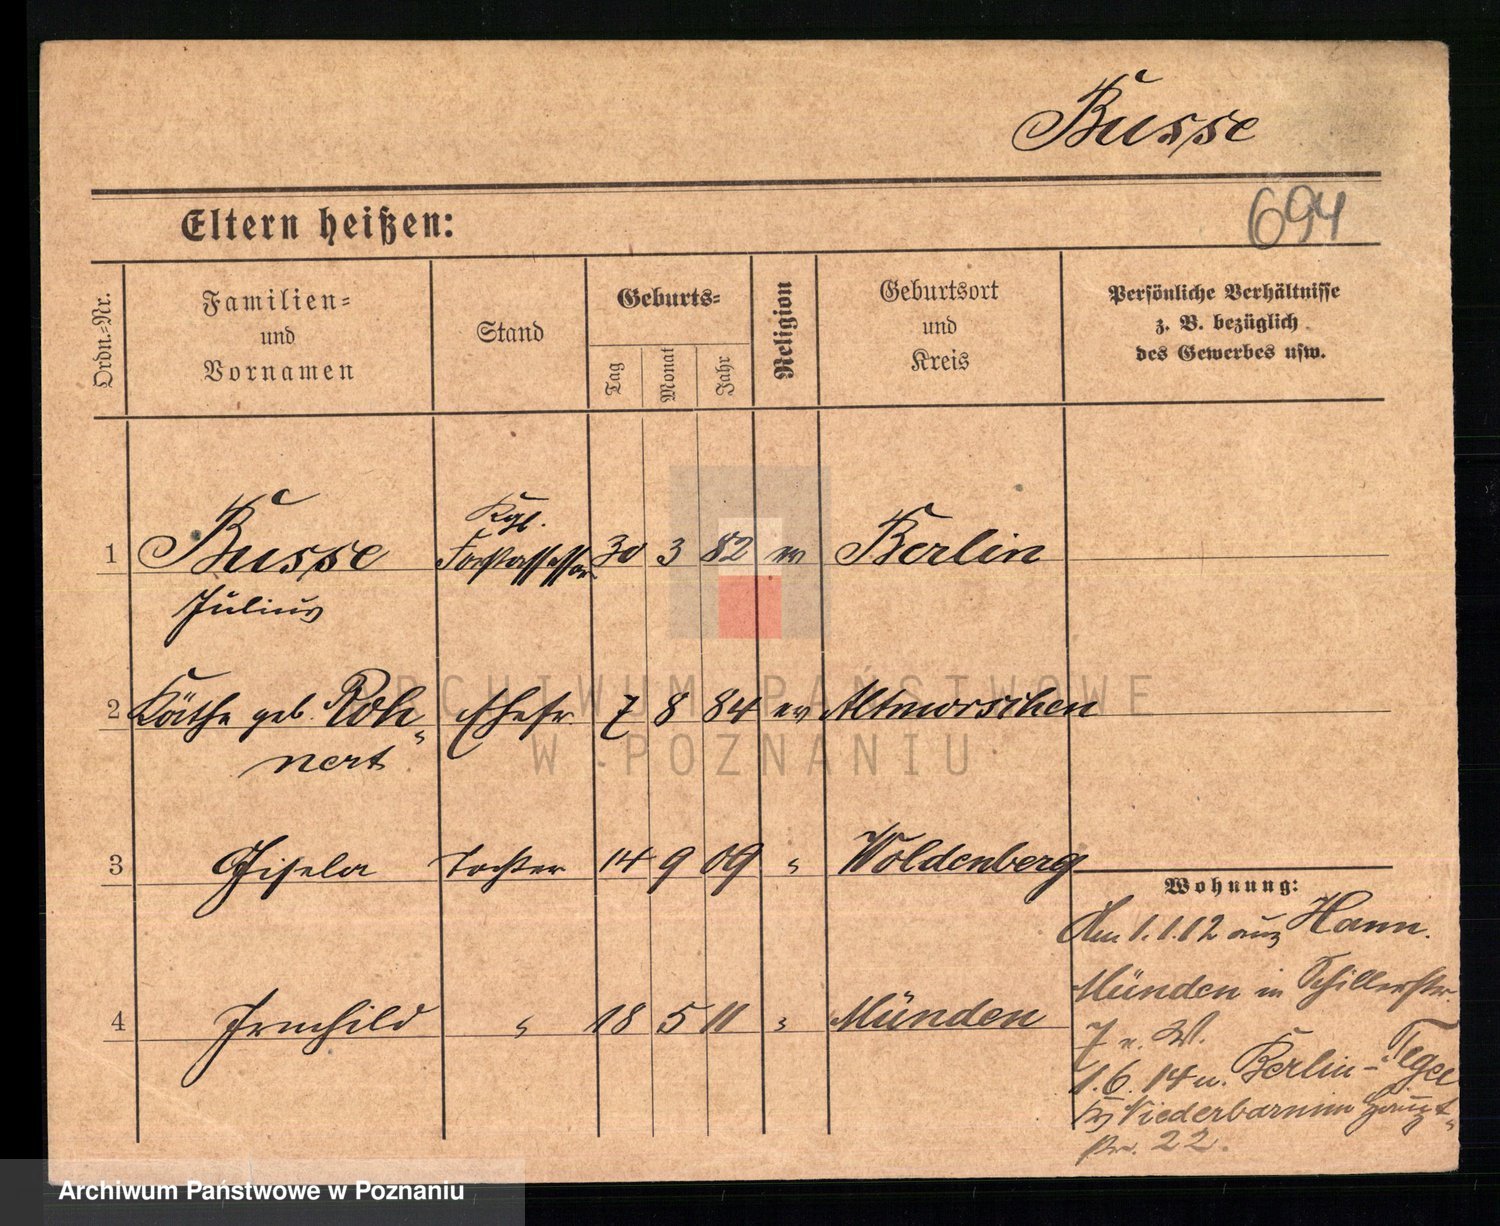 Busse
694
Eltern heißen:
Ordn.-Nr.
Familien-
und
Vornamen
Stand
Geburts-
Tag
Monat
Jahr
Religion
Geburtsort
und
Kreis
Persönliche Verhältnisse
z. B. bezüglich
des Gewerbes usw.
Kgl.
1 Busse Forstassessor 30 3 82 ev Berlin
Julius
2 Käthe geb. Roh- Ehefr. 7 8 84 ev Altmorschen
nert
3 Gisela Tochter 14 9 09 " Woldenberg
Wohnung:
Am 1.1.12 aus Hann.
Münden in Schillerstr.
4 Irmhild " 18 5 11 " Münden
7 n. W.
1.6.14 n. Berlin-Tegel
Kr Niederbarnim Haupt-
str. 22.
ARCHIWUM PAŃSTWOWE
W POZNANIU
Archiwum Państwowe w Poznaniu